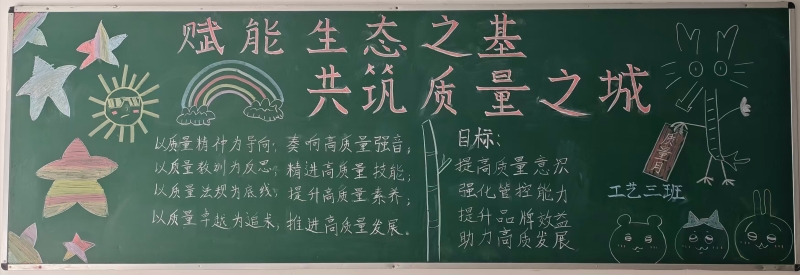 赋能生态之基
共筑质量之城
以质量精神为导向，奏响高质量强音；
以质量教训为反思，精进高质量技能；
以质量法规为底线，提升高质量素养；
以质量卓越为追求，推进高质量发展。
目标：
提高质量意识
强化管控能力
提升品牌效益
助力高质发展
质量月
工艺三班